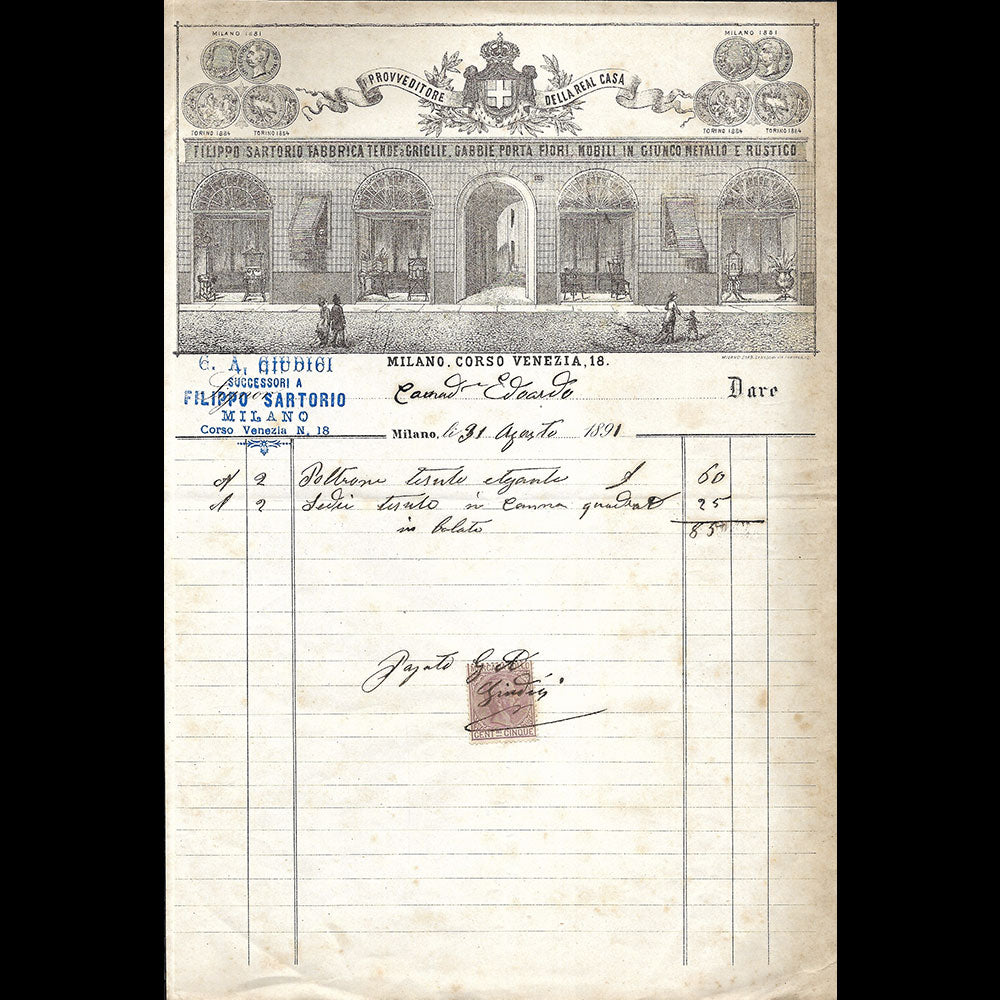 MILANO 1881
MILANO 1881
PROVVEDITORE DELLA REAL CASA
TORINO 1884 TORINO 1884
TORINO 1884 TORINO 1884
FILIPPO SARTORIO FABBRICA TENDE & GRIGLIE, GABBIE PORTA FIORI, MOBILI IN GIUNCO METALLO E RUSTICO
MILANO, CORSO VENEZIA, 18.
G. A. GIUDICI
SUCCESSORI A
FILIPPO SARTORIO
MILANO
Corso Venezia N. 18
Edoardo Dare
Milano, li 31 Agosto 1891
2 Poltrone tessute eleganti 60
2 Sedie tessute in Canna quadra 25
in 85
Pagato G A
Giudici
MARCA DA BOLLO
CENT. CINQUE